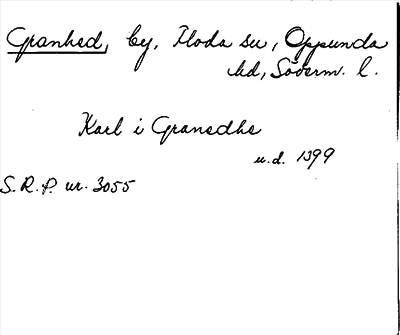 Granhed, by, Floda sn, Oppunda
hd, Söderm. l.
Karl i Granedhe
u.d. 1399
S.R.P. nr. 3055